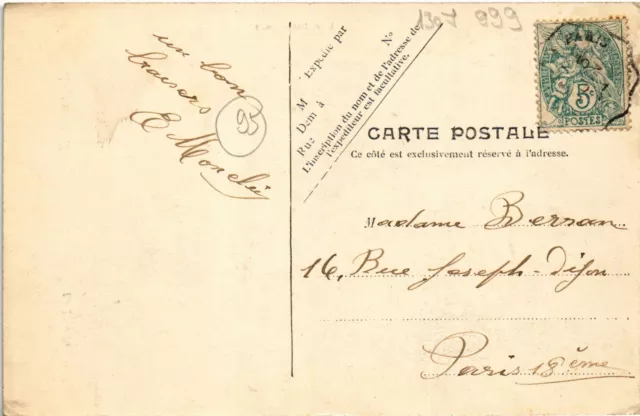 un bon
baisers
E Morché
93
1307 999
Expédié par
M
Dem à
Rue
N°
L'inscription du nom et de l'adresse de
l'expéditeur est facultative.
PARIS
5c
POSTES
CARTE POSTALE
Ce côté est exclusivement réservé à l'adresse.
Madame Bernan
16, Rue Joseph-Dijon
Paris 18ème